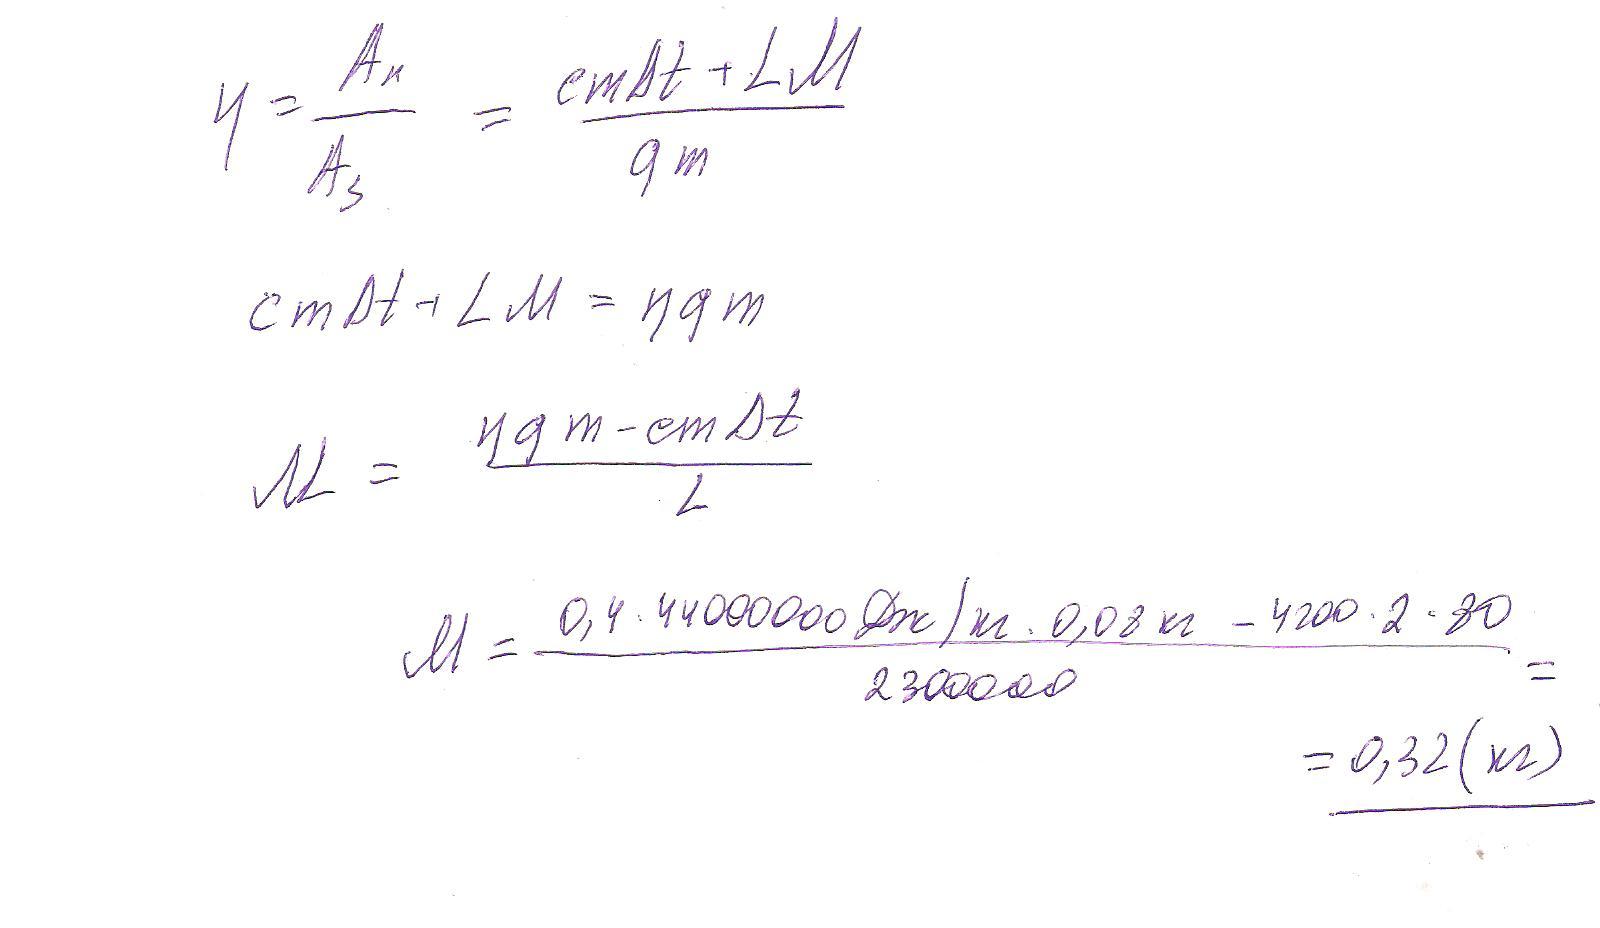 η = Aп / Aз = (cmΔt + LM) / qm
cmΔt + LM = ηqm
M = (ηqm - cmΔt) / L
M = (0,4 · 44000000 Дж/кг · 0,08 кг - 4200 · 2 · 80) / 2300000 =
= 0,32 (кг)